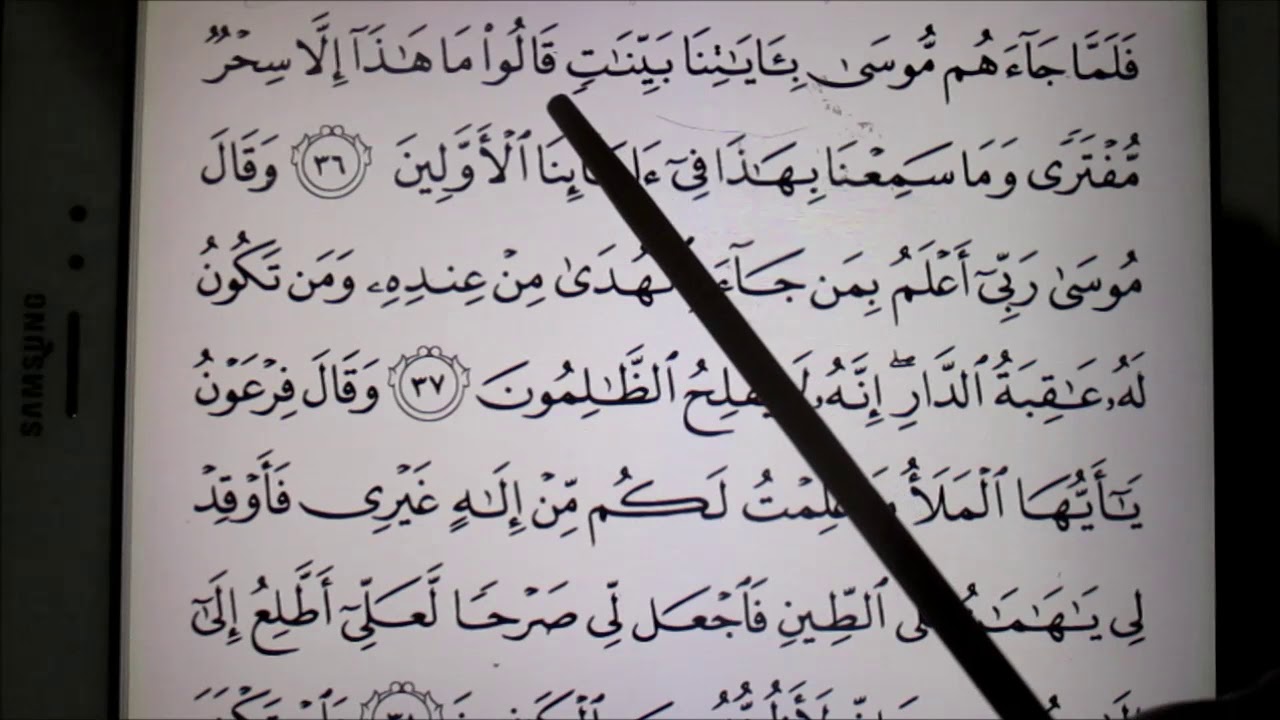 فَلَمَّا جَآءَهُم مُّوسَىٰ بِـَٔايَـٰتِنَا بَيِّنَـٰتٍ قَالُوا۟ مَا هَـٰذَآ إِلَّا سِحْرٌ
مُّفْتَرًى وَمَا سَمِعْنَا بِهَـٰذَا فِىٓ ءَابَآئِنَا ٱلْأَوَّلِينَ ٣٦ وَقَالَ
مُوسَىٰ رَبِّىٓ أَعْلَمُ بِمَن جَآءَ بِٱلْهُدَىٰ مِنْ عِندِهِۦ وَمَن تَكُونُ
لَهُۥ عَـٰقِبَةُ ٱلدَّارِ ۖ إِنَّهُۥ لَا يُفْلِحُ ٱلظَّـٰلِمُونَ ٣٧ وَقَالَ فِرْعَوْنُ
يَـٰٓأَيُّهَا ٱلْمَلَأُ مَا عَلِمْتُ لَكُم مِّنْ إِلَـٰهٍ غَيْرِى فَأَوْقِدْ
لِى يَـٰهَـٰمَـٰنُ عَلَى ٱلطِّينِ فَٱجْعَل لِّى صَرْحًا لَّعَلِّىٓ أَطَّلِعُ إِلَىٰٓ
SAMSUNG